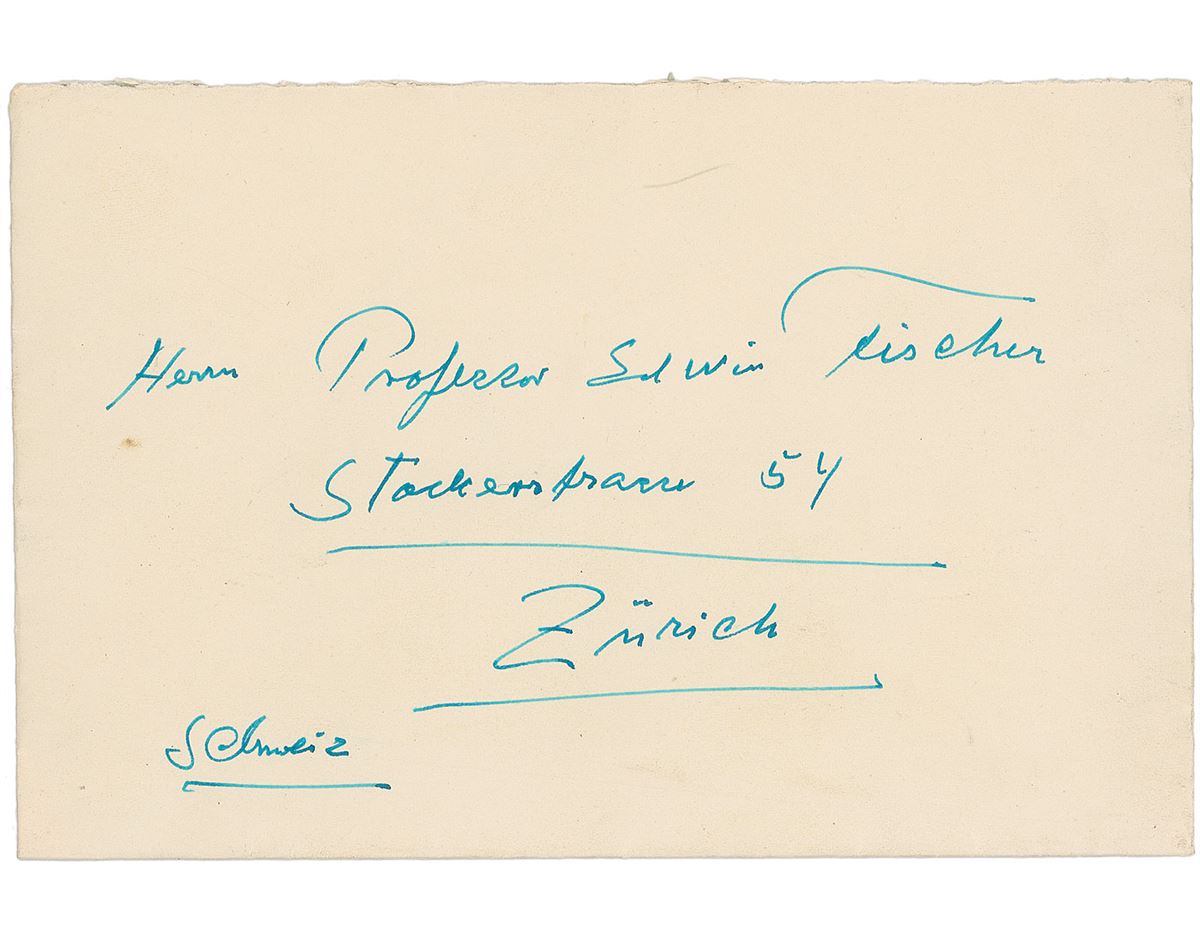 Herrn Professor Edwin Fischer
Stockerstrasse 54
Zürich
Schweiz